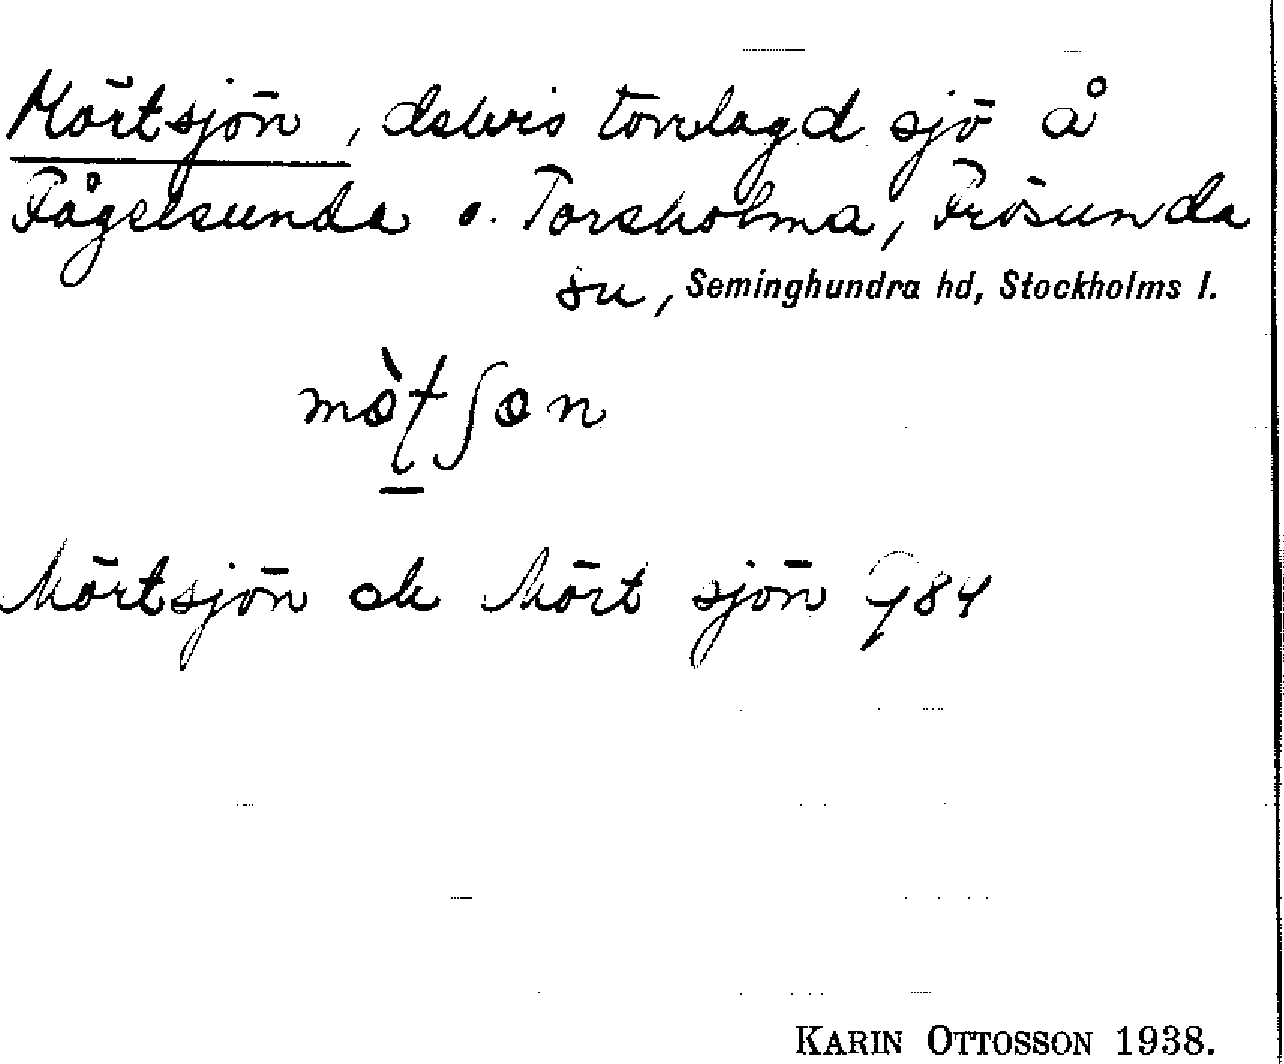 Mörtsjön, delvis torrlagd sjö å
Fågelsunda o. Torsholma, Frösunda
sn, Seminghundra hd, Stockholms l.
Mörtsjön ek Mört sjön 984
KARIN OTTOSSON 1938.